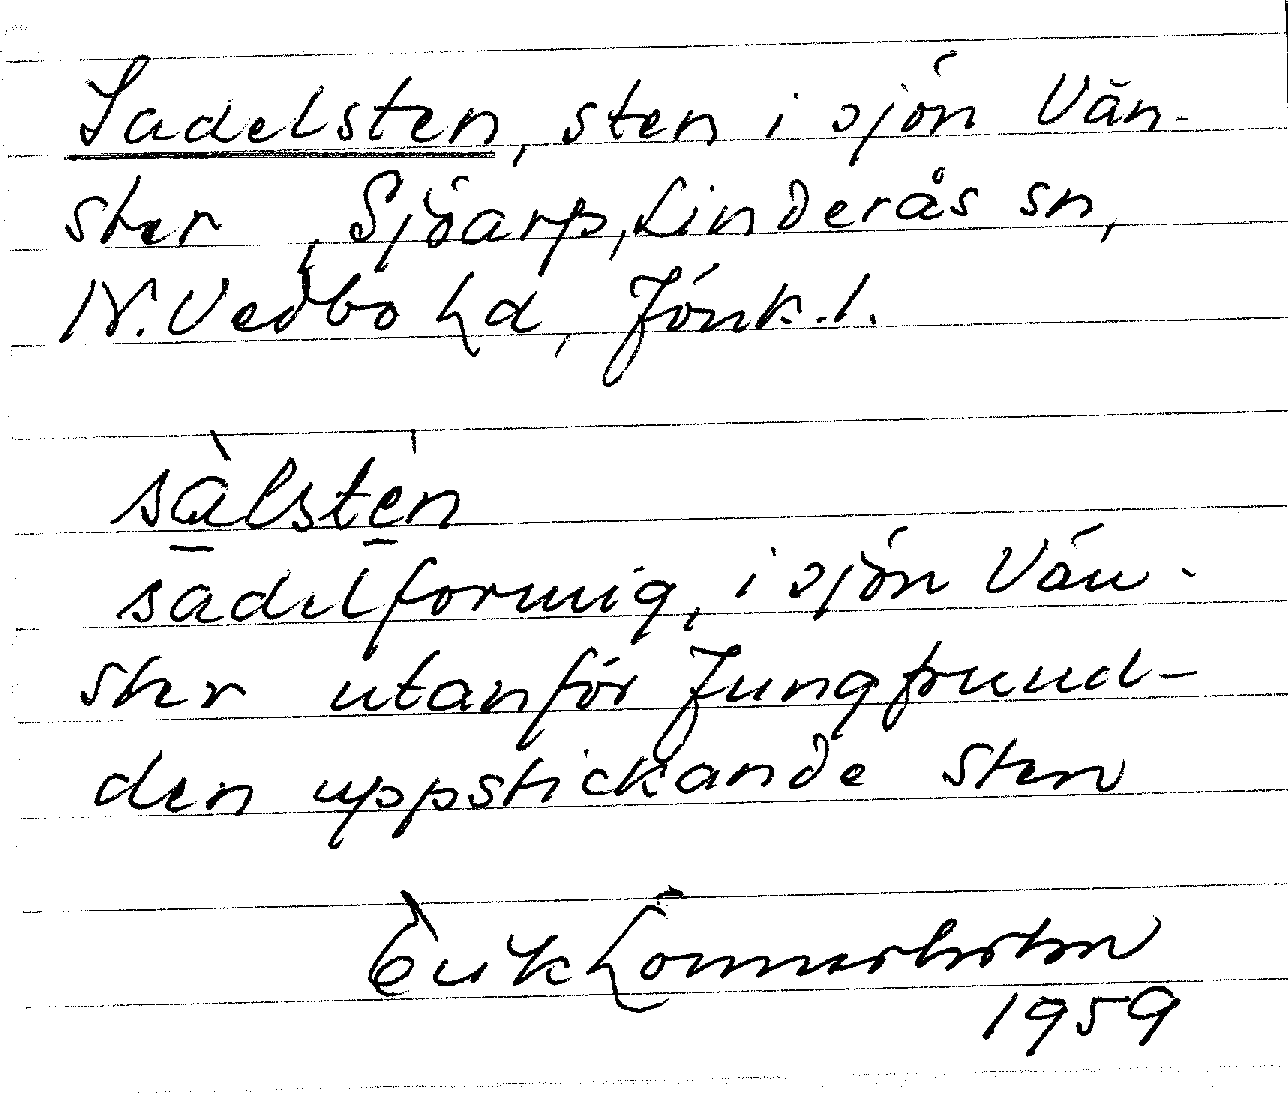 Sadelsten, sten i sjön Vän-
ster, Sjöarp, Linderås sn,
N. Vedbo hd, Jönk. l.
sàlstén
sadelformig, i sjön Vän-
ster utanför Jungfruud-
den uppstickande sten
Erik Lönnerholm
1959